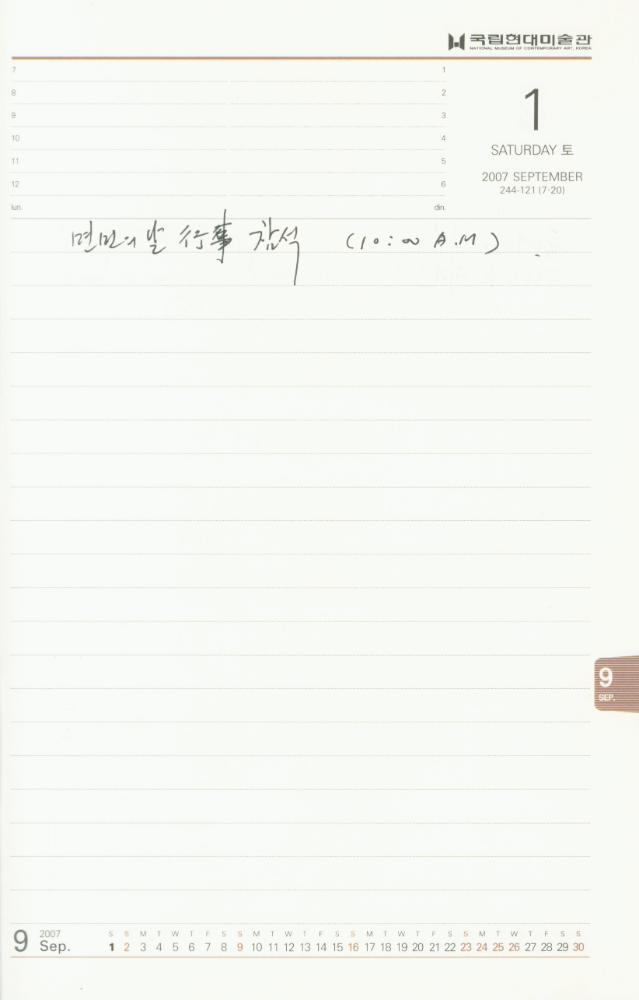 국립현대미술관
NATIONAL MUSEUM OF CONTEMPORARY ART, KOREA
7 1
8 2
9 3
10 4
11 5
12 6
lun. din.
1
SATURDAY 토
2007 SEPTEMBER
244-121 (7·20)
면민의 날 行事 참석 (10:00 A.M)
9
SEP.
9 2007 Sep.
S S M T W T F S S M T W T F S S M T W T F S S M T W T F S S
1 2 3 4 5 6 7 8 9 10 11 12 13 14 15 16 17 18 19 20 21 22 23 24 25 26 27 28 29 30